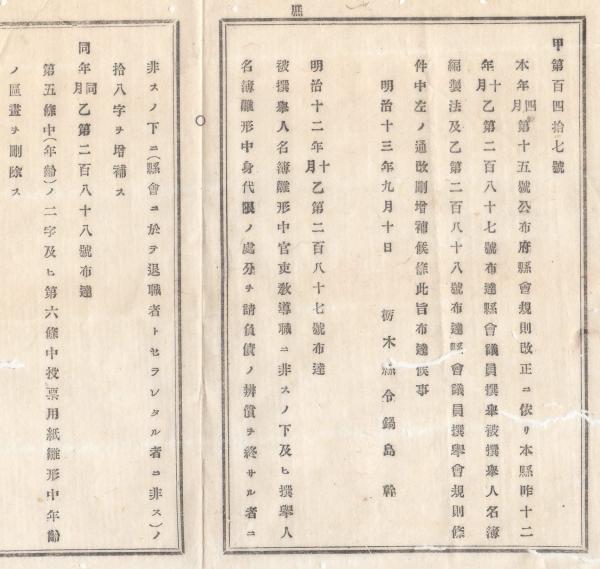 甲第百四拾七號
本年四月第十五號公布府縣會規則改正ニ依リ本縣昨十二
年十月乙第二百八十七號布達縣會議員撰擧被撰擧人名簿
編製法及乙第二百八十八號布達縣會議員撰擧會規則條
件中左ノ通改刪增補候條此旨布達候事
明治十三年九月十日 栃木縣令鍋島幹
明治十二年十月乙第二百八十七號布達
被撰擧人名簿雛形中官吏敎導職ニ非スノ下及ヒ撰擧人
名簿雛形中身代限ノ處分ヲ請負債ノ辨償ヲ終サル者ニ
非スノ下ニ(縣會ニ於テ退職者トセラレタル者ニ非ス)ノ
拾八字ヲ增補ス
同年同月乙第二百八十八號布達
第五條中(年齡)ノ二字及ヒ第六條中投票用紙雛形中年齡
ノ區畫ヲ刪除ス